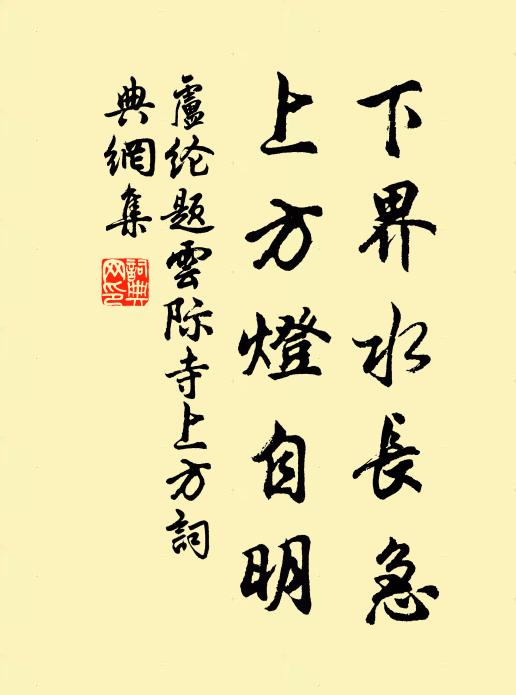 下界水長急
上方燈自明
盧纶題雲际寺上方詞
典網集
詞典网印